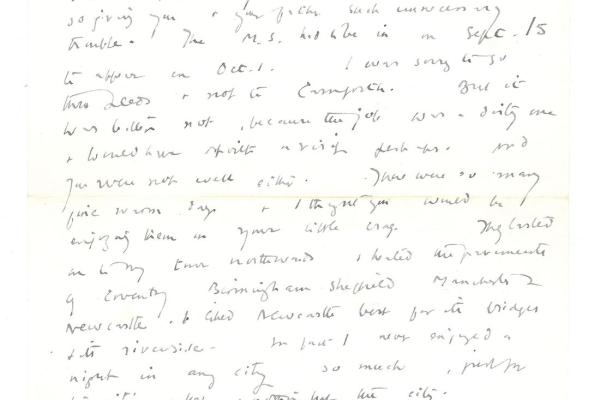 so giving you & your father such unnecessary
trouble. The M.S. had to be in on Sept. 15
to appear in Oct. 1. I was sorry to go
thro Leeds & not to Carnforth. But it
was better not, because the job was a dirty one
& would have spoilt a visit perhaps. And
you were not well either. There were so many
fine warm days & I thought you would be
enjoying them in your little crag. They lasted
on to my tour northwards & I hated the improvements
of Coventry Birmingham Sheffield Manchester
Newcastle & liked Newcastle best for its bridges
& its riverside. In fact I never enjoyed a
night in any city so much, just for
but the city.